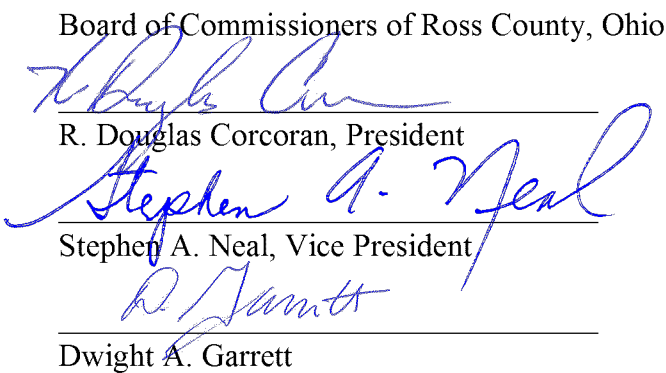 Board of Commissioners of Ross County, Ohio
R. Douglas Corcoran
R. Douglas Corcoran, President
Stephen A. Neal
Stephen A. Neal, Vice President
D. Garrett
Dwight A. Garrett